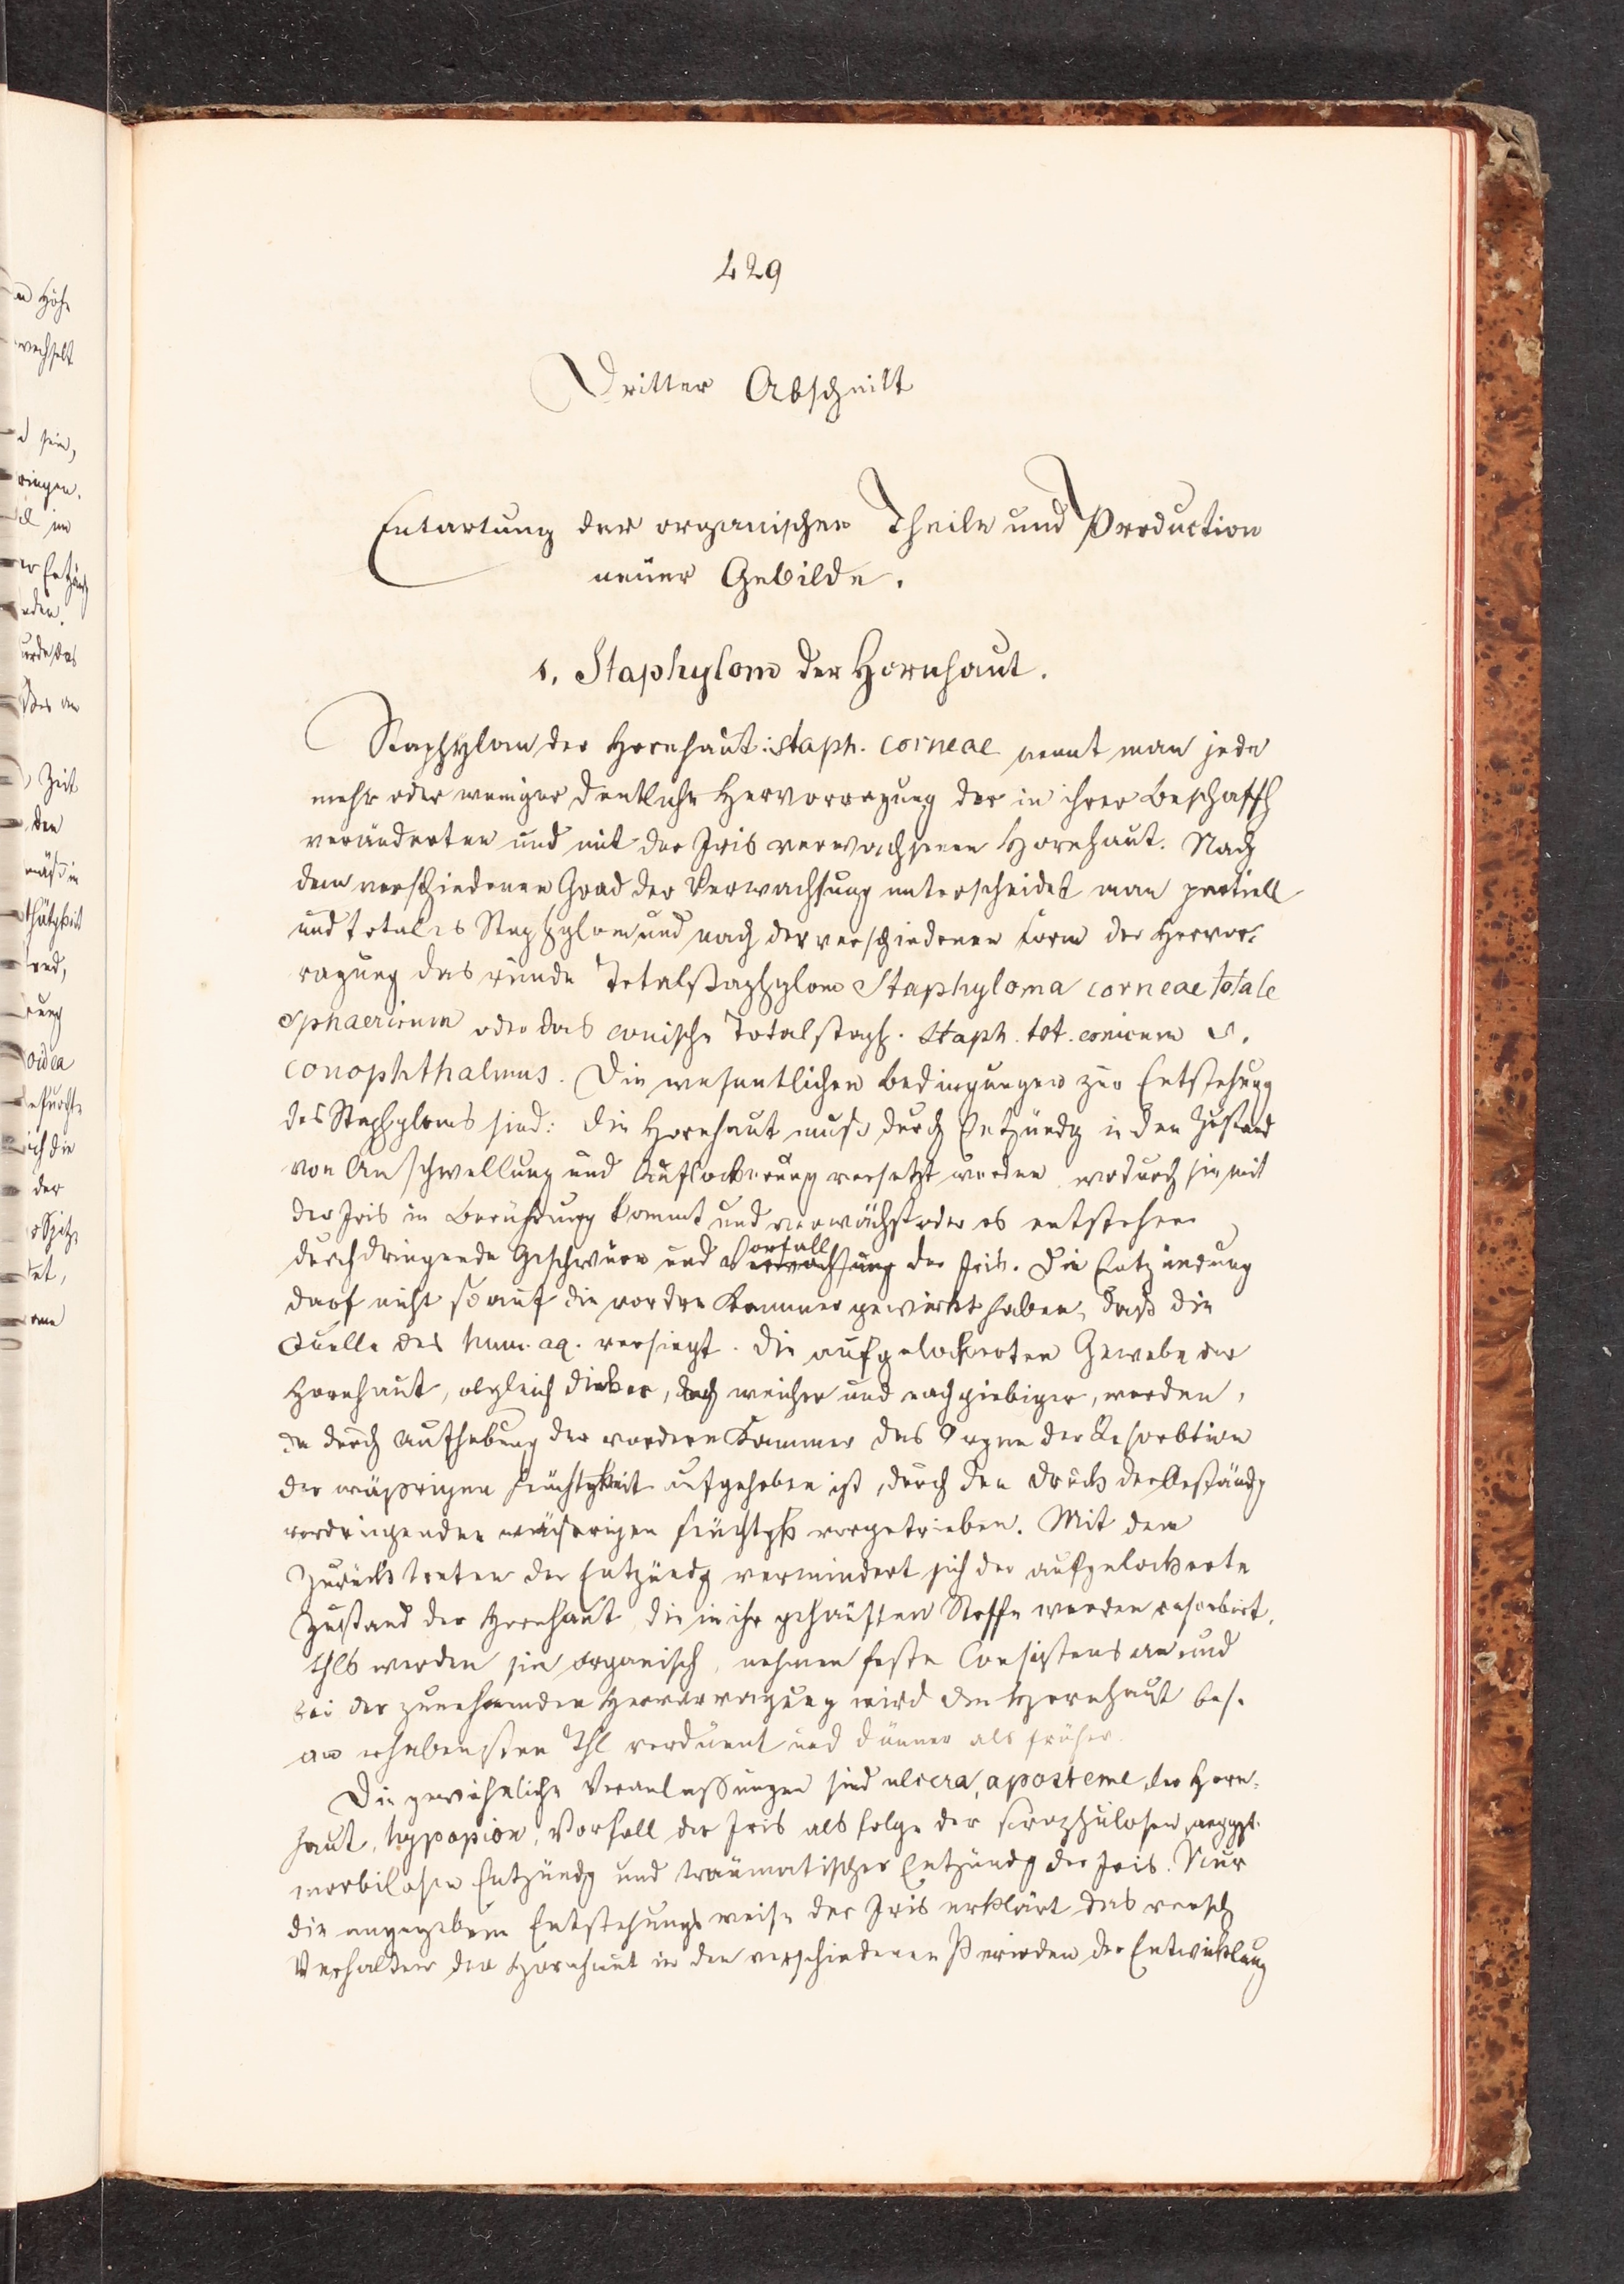 429
Dritter Abschnitt
Entartung der organischen Theile und Production
neuer Gebilde.
1. Staphylom der Hornhaut.
Staphylom der Hornhaut: staph. corneae nennt man jede
mehr oder weniger deutliche Hervorragung der in ihrer Beschaffh
veränderten und mit der Iris verwachsenen Hornhaut. Nach
dem verschiedenen Grad der Verwachsung unterscheidet man partiell
und totales Staphylom und nach der verschiedenen Form der Hervor-
ragung das runde Totalstaphylom Staphyloma corneae totale
sphaericum oder das conische Totalstaph. Staph. tot. conicum s.
conophthalmus. Die wesentlichen Bedingungen zur Entstehung
des Staphyloms sind: die Hornhaut muß durch Entzündg in den Zustand
von Anschwellung und Auflockerung versetzt werden wodurch sie mit
der Iris in Berührung kommt und verwächst oder es entstehen
durchdringende Geschwüre und Vorfall der Iris. Die Entzündung
darf nicht so auf die vordre Kammer gewirkt haben, daß die
Quelle des hum. aq. versiegt. Die aufgelockerten Gewebe der
Hornhaut, obgleich dicker, doch weicher und nachgiebiger, werden,
da durch Aufhebung der vordern Kammer das Organ der Resorbtion
der wäßrigen Feuchtgkeit aufgehoben ist, durch den Druck der beständg
vordringenden wäßrigen Feuchtgk vorgetrieben. Mit dem
Zurücktreten der Entzündg vermindert sich der aufgelockerte
Zustand der Hornhaut, die in ihr gehäuften Stoffe werden resorbirt,
thls werden sie organisch, nehmen feste Consistens an und
bei der zunehmenden Hervorragung wird die Hornhaut bes.
am erhabensten Thl verdünnt und dünner als früher.
Die gewöhnliche Veranlaßungen sind ulcera, aposteme der Horn-
haut, hypopion, Vorfall der Iris als Folge der scrophulosen, aegypt.
morbilosen Entzündg und traumatischer Entzündg der Iris. Nur
die angegebene Entstehungsweise der Iris erklärt das versch
Verhalten der Hornhaut in den verschiedenen Perioden der Entwicklung